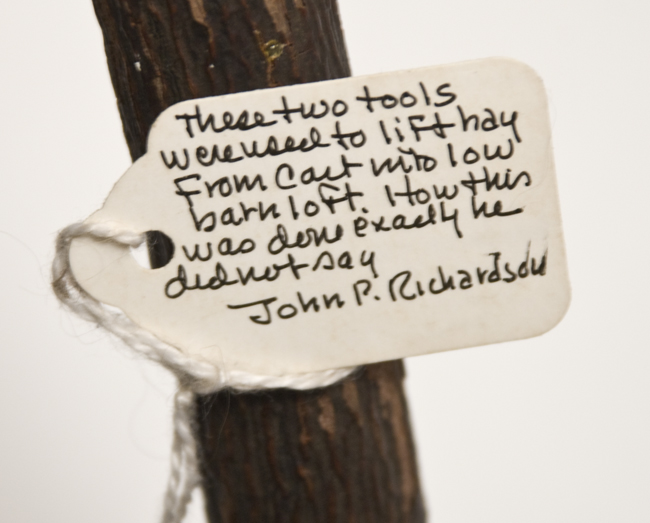 These two tools
were used to lift hay
From Cart into low
barn loft. How this
was done exactly he
did not say
John P. Richardson